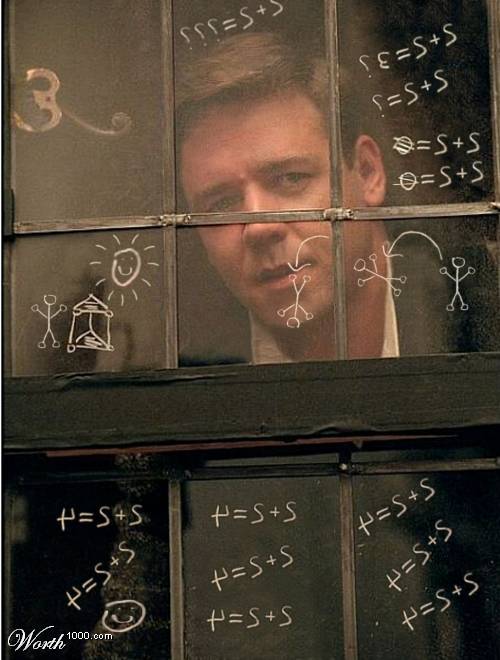 2+2=???
2+2=3?
2+2=?
2+2=
2+2=
2+2=4
2+2=4
2+2=4
2+2=4
2+2=4
2+2=4
2+2=4
2+2=4
Worth1000.com